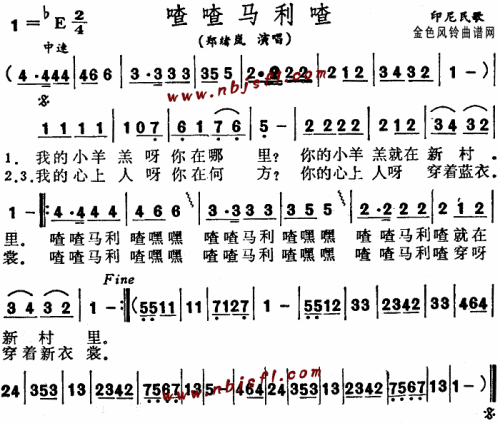 喳喳马利喳
1=♭E 2/4
印尼民歌
中速
(郑绪岚 演唱)
金色风铃曲谱网
(4·444|466|3·333|355|2·222|212|3432|1-)|
www.nbjsfl.com
1111|107|6176|5-|2222|212|3432|
1.我的小羊 羔 呀 你在哪 里? 你的小羊 羔就在 新 村 .
2.3.我的心上 人 呀 你在何 方? 你的心上 人呀 穿着蓝衣.
1-|:4·444|466|3·333|355|2·222|212|
里. 喳喳马利 喳嘿嘿 喳喳马利 喳嘿嘿 喳 喳马利 喳就在
裳. 喳喳马利 喳嘿嘿 喳喳马利 喳嘿嘿 喳 喳马利 喳穿呀
Fine
3432|1-:|(5511|11|7127|1-|5512|33|2342|33|464|
新 村 里.
穿着新衣 裳.
www.nbjsfl.com
24|353|13|2342|7567|13|5-|464|24|353|13|2342|7567|13|1-)||